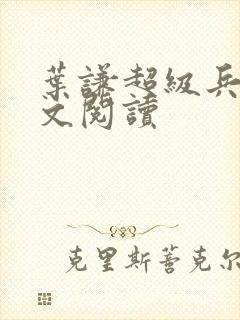 葉謙超級兵
文閱讀
克里斯蒼克尔